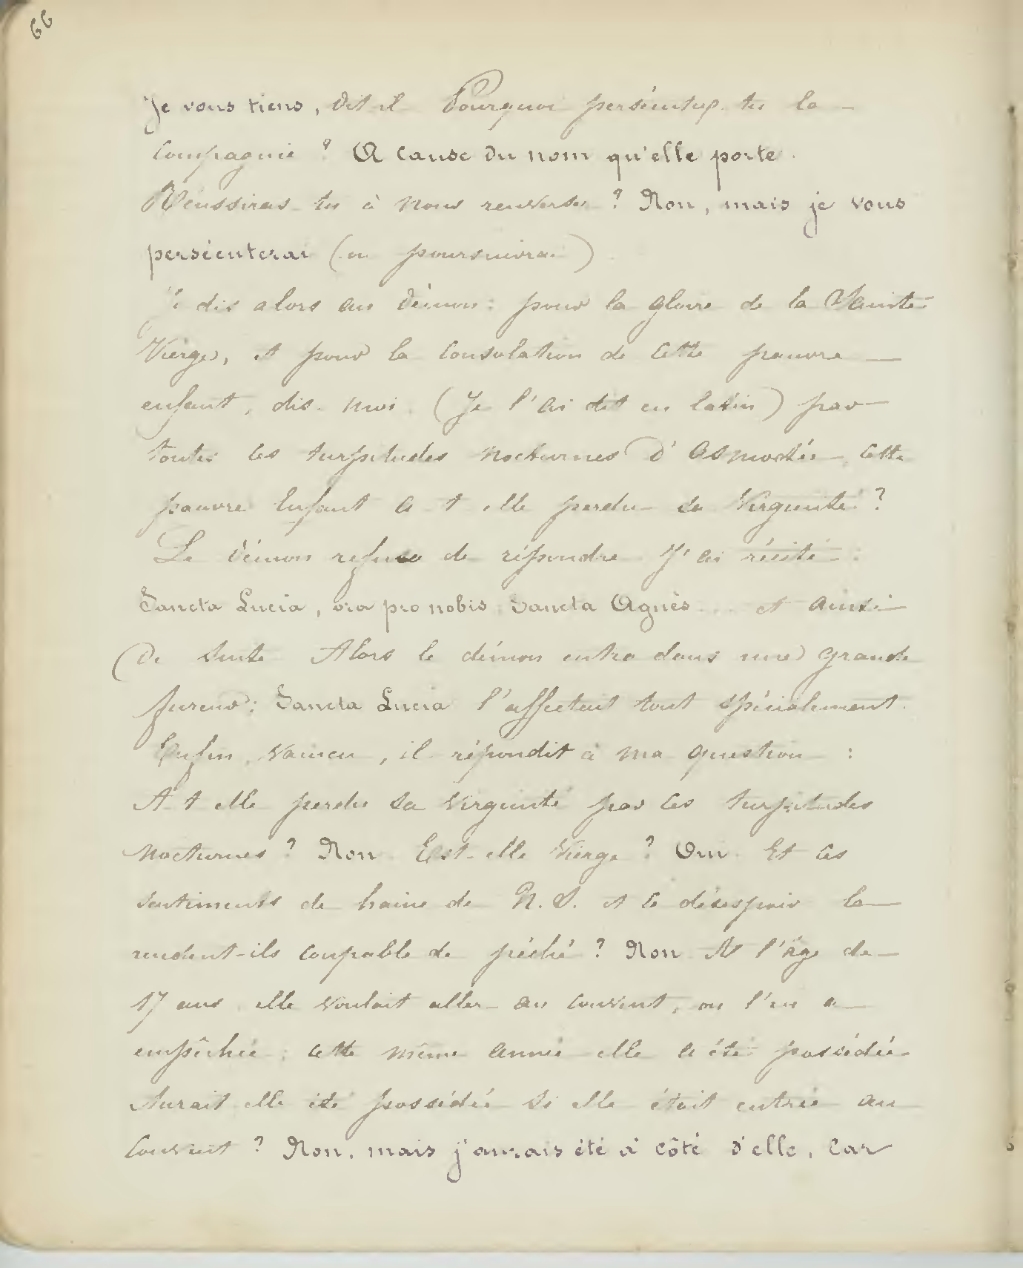 66
Je vous tiens, dit-il Pourquoi persécutes-tu la
Compagnie ? A cause du nom qu'elle porte.
Réussiras-tu à nous renverser ? Non, mais je vous
persécuterai (ou poursuivrai)
Je dis alors au démon : pour la gloire de la Sainte
Vierge, et pour la Consolation de cette pauvre
enfant, dis-moi. (Je l'ai dit en latin) par
toutes les turpitudes nocturnes d'Asmodée cette
pauvre Enfant a-t-elle perdu sa Virginité ?
Le démon refusa de répondre J'ai récité :
Sancta Lucia, ora pro nobis, Sancta Agnès... et ainsi
de suite Alors le démon entra dans une grande
fureur : Sancta Lucia l'affectait tout spécialement.
Enfin, vaincu, il répondit à ma question :
A-t-elle perdu sa virginité par les turpitudes
nocturnes ? Non Est-elle Vierge ? Oui. Et ces
sentiments de haine de N.S. et le désespoir la
rendent-ils coupable de péché ? Non A l'âge de
17 ans elle voulait aller au Couvent, on l'en a
empêchée ; cette même année elle a été possédée
Aurait-elle été possédée si elle était entrée au
Couvent ? Non, mais j'aurais été à côté d'elle, car